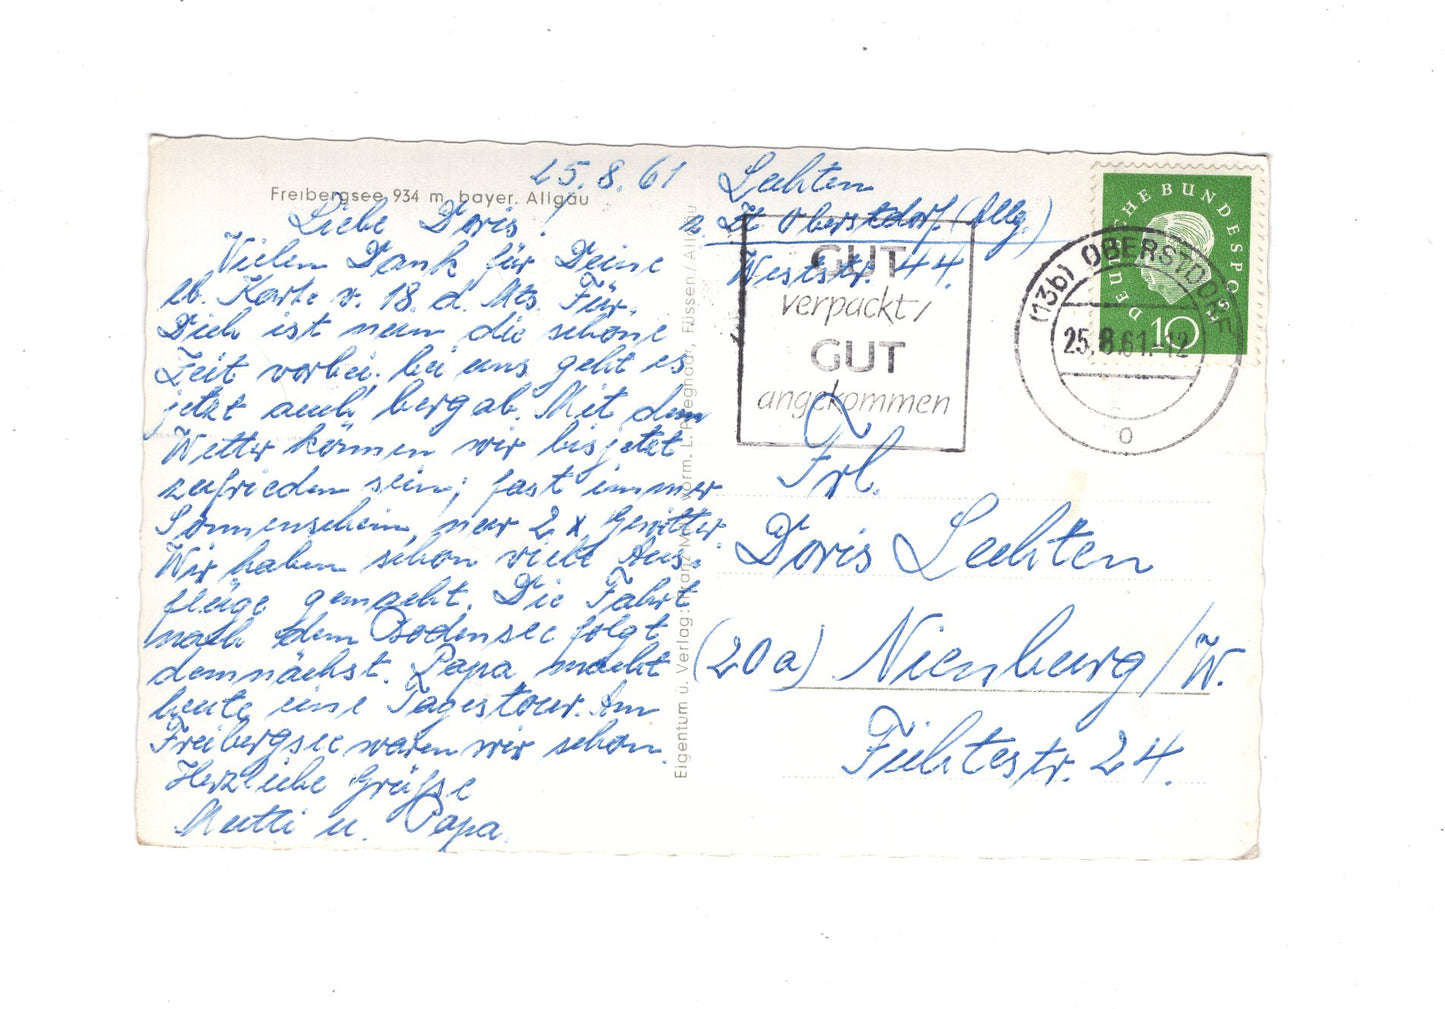 Freibergsee 934 m, bayer. Allgäu
25.8.61
Liebe Doris!
Vielen Dank für Deine
lb. Karte v. 18. d. Mts. Für
Dich ist nun die schöne
Zeit vorbei, bei uns geht es
jetzt auch bergab. Mit dem
Wetter können wir bis jetzt
zufrieden sein; fast immer
Sonnenschein, nur 2 x Gewitter.
Wir haben schon viele Aus-
flüge gemacht. Die Fahrt
nach dem Bodensee folgt
demnächst. Papa macht
heute eine Tagestour. Am
Freibergsee waren wir schon.
Herzliche Grüße
Mutti u. Papa.
Eigentum u. Verlag: Franz M. vorm. L. Füssen/Allgäu
Lechten
z. Zt Oberstdorf (Allg.)
Weststr. 44.
GUT
verpackt/
GUT
angekommen
DEUTSCHE BUNDESPOST
10
(13b) OBERSTDORF
25.8.61.-12
o
Frl.
Doris Lechten
(20a) Nienburg/W.
Fichtestr. 24.